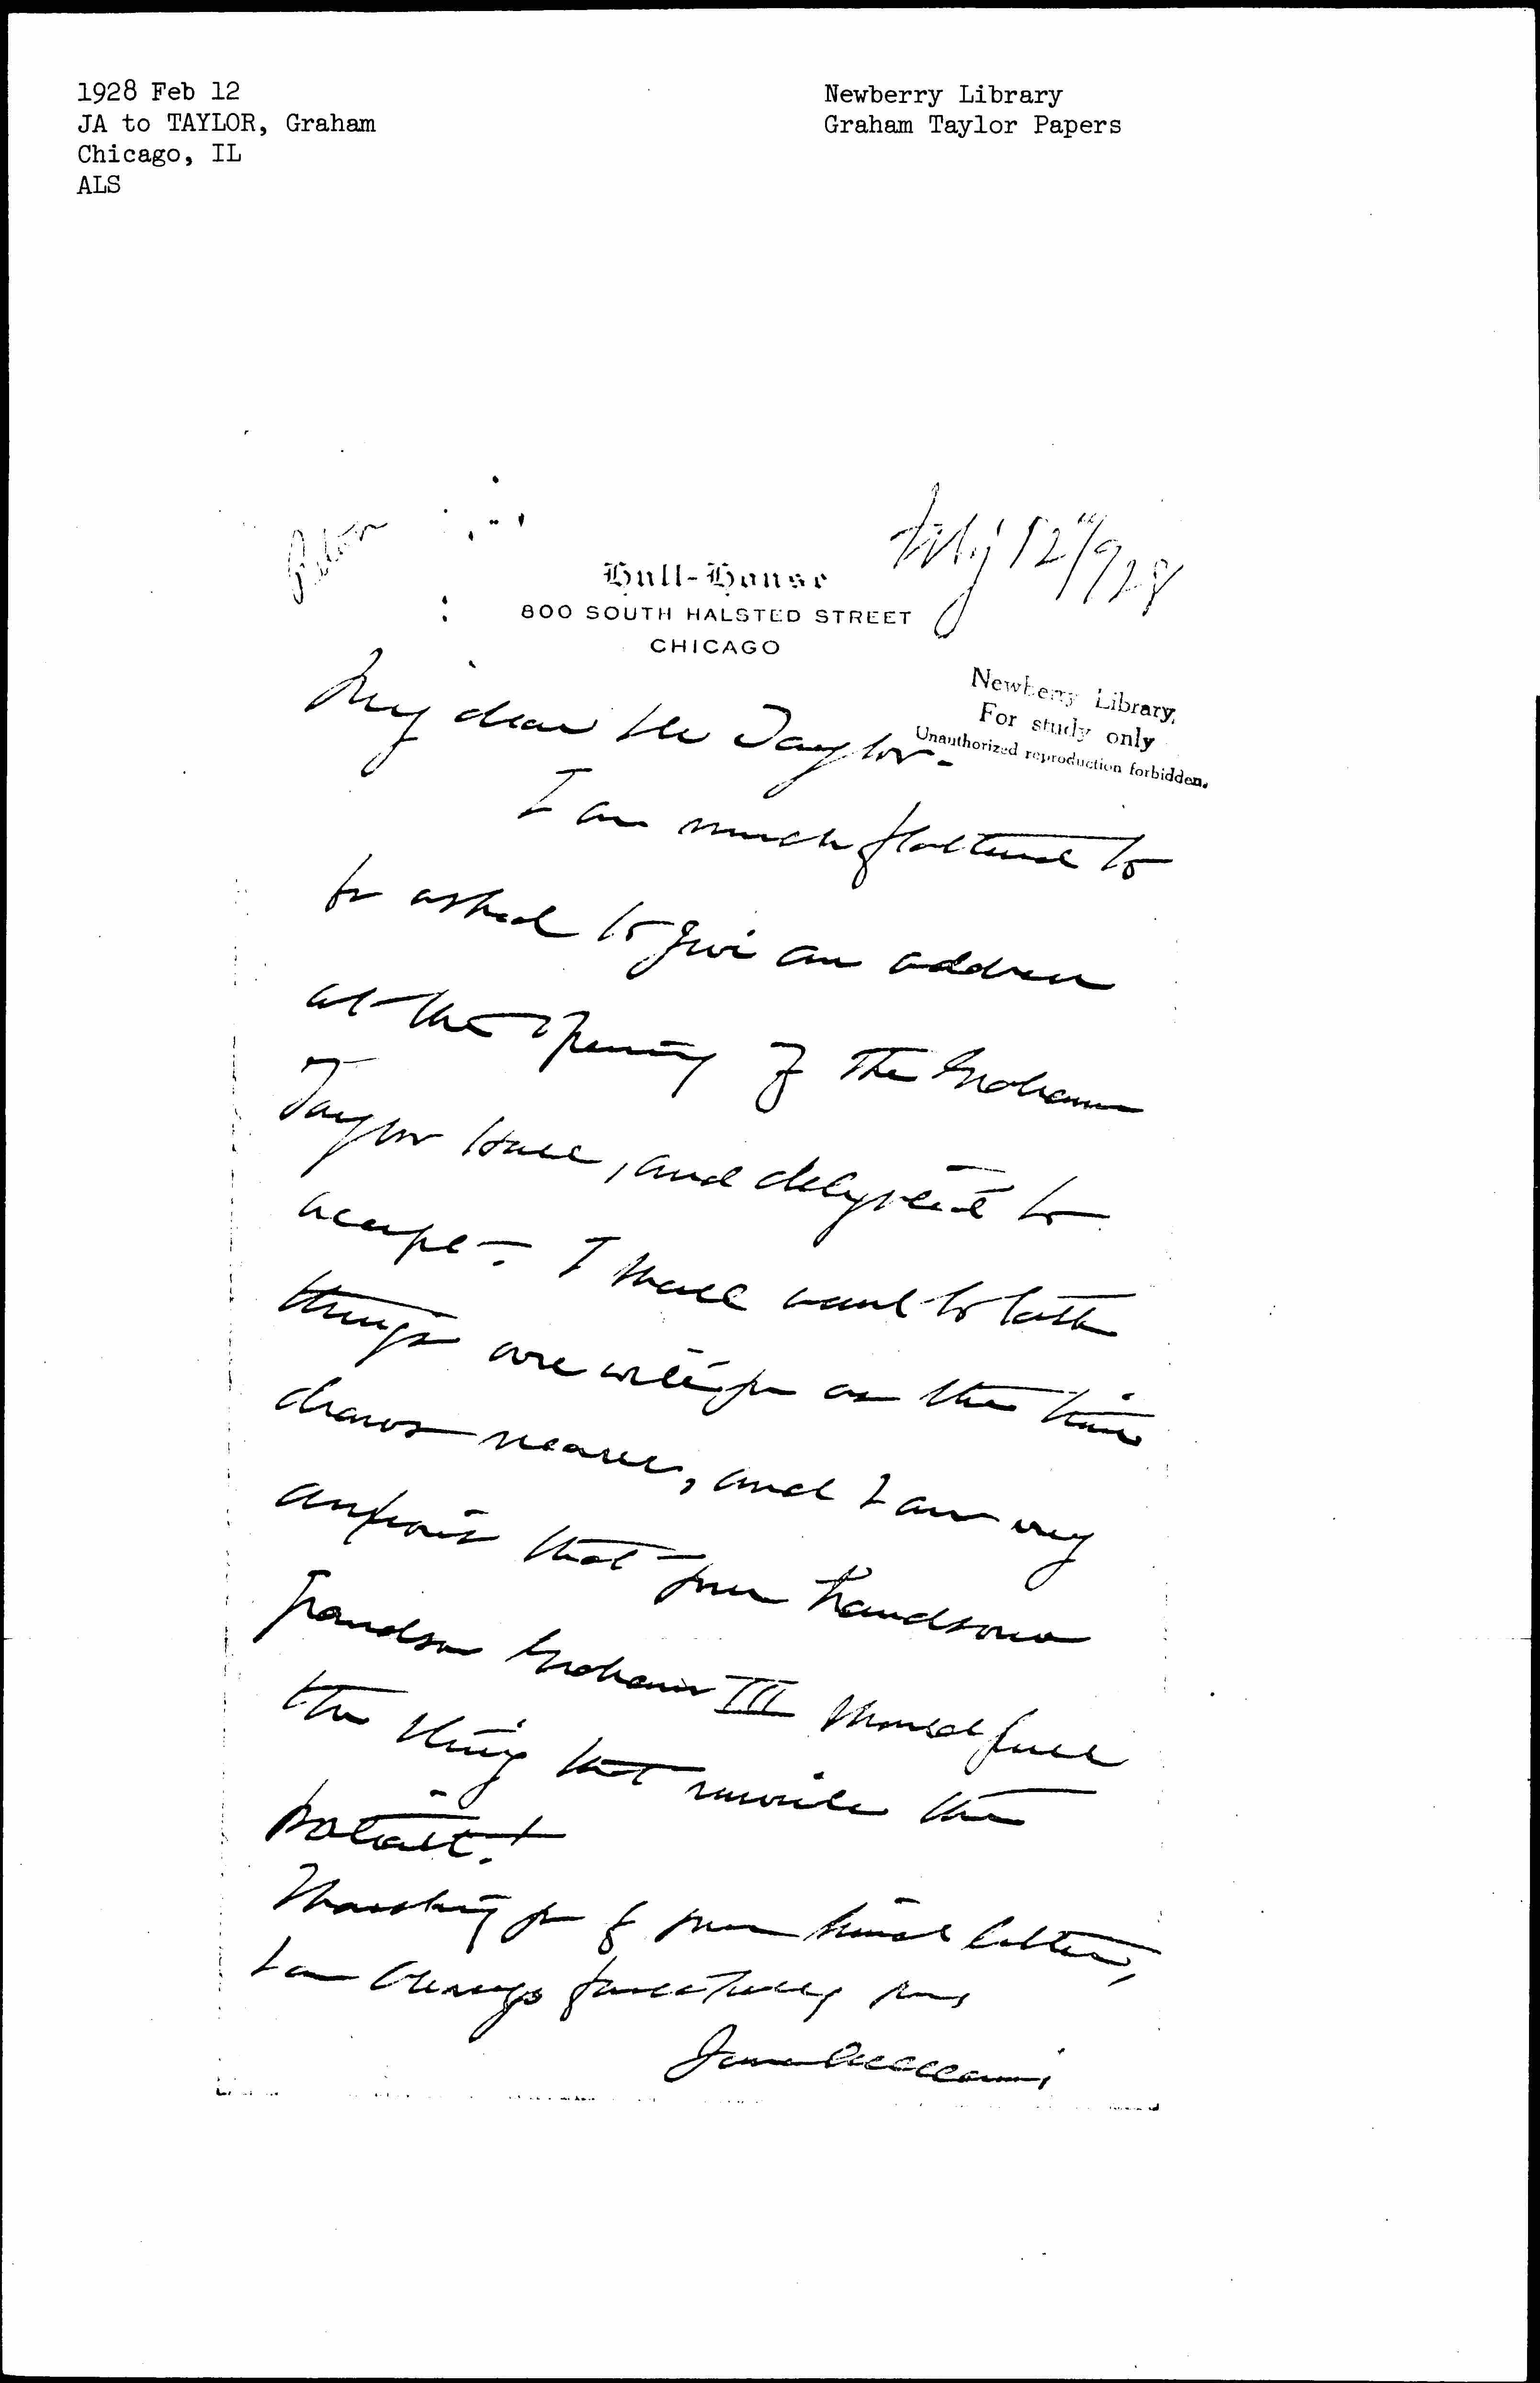 1928 Feb 12
JA to TAYLOR, Graham
Chicago, IL
ALS
Newberry Library
Graham Taylor Papers
Feby 12" 1928
Hull-House
800 SOUTH HALSTED STREET
CHICAGO
Newberry Library,
For study only
Unauthorized reproduction forbidden.
My dear Mr Taylor -
I am much flattered to
be asked to give an address
at the opening of the Graham
Taylor Hall, and delighted to
accept - I shall want to talk
things over with you as the time
draws nearer, and I am very
anxious that your handsome
grandson Graham III should pull
the thing that unveils the
portrait!
Thanking you for your kind letter,
I am always faithfully yours
Jane Addams